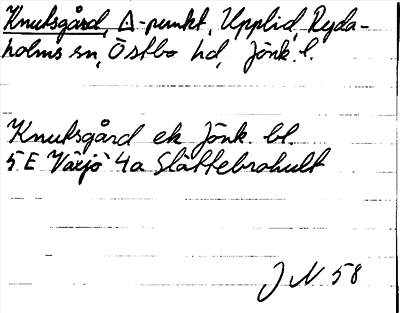 Knutsgård, Δ-punkt, Upplid, Ryda-
holms sn, Östbo hd, Jönk. l.
Knutsgård ek Jönk. bl.
5 E Växjö 4a Slättebrohult
J N 58